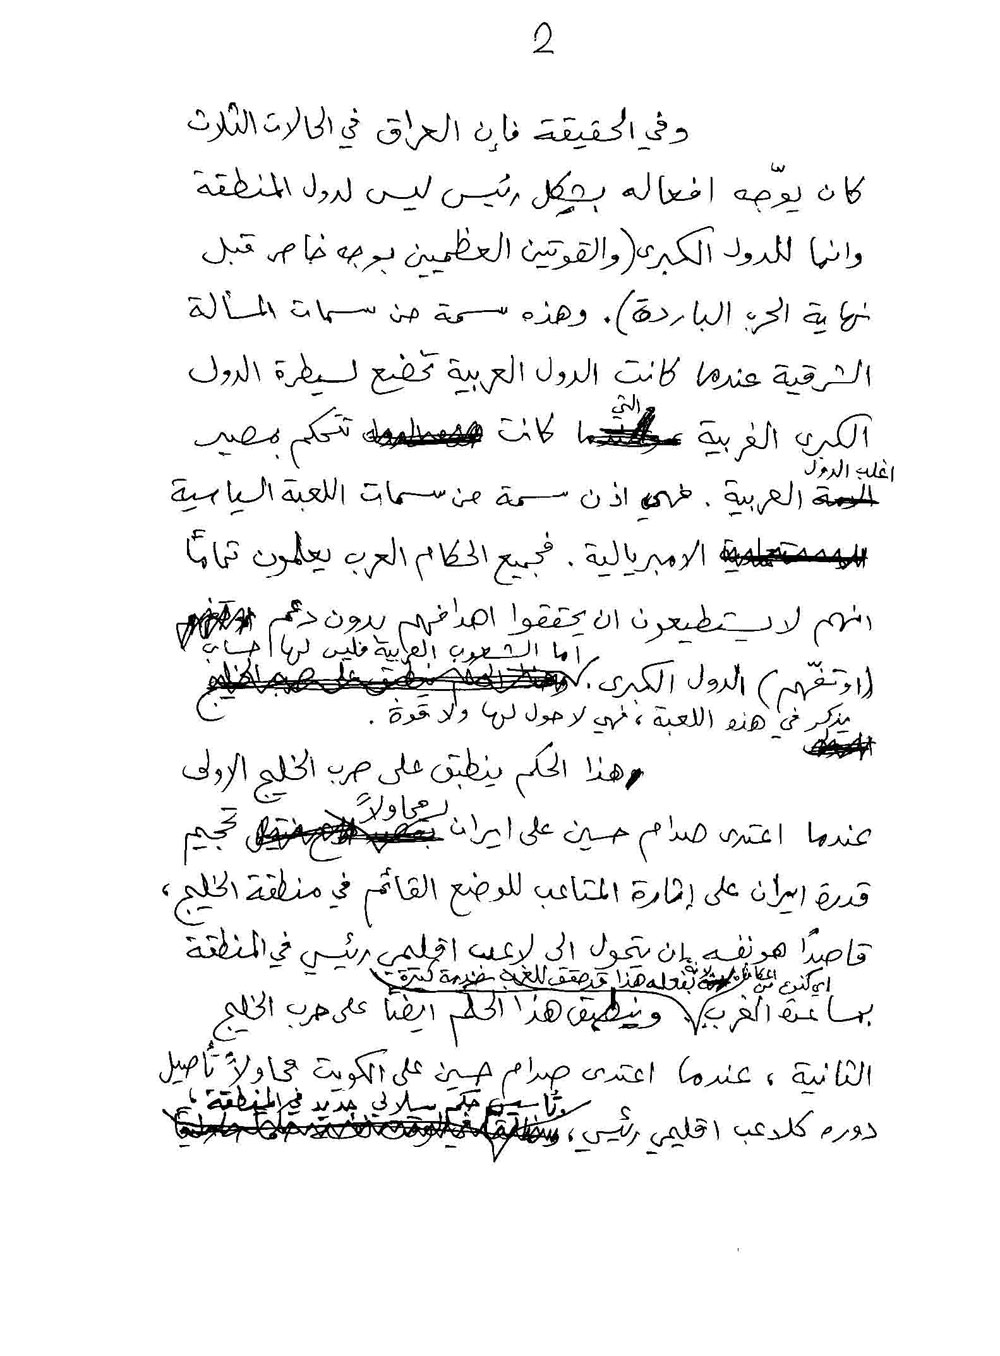 2
وفي الحقيقة فإن العراق في الحالات الثلاث
كان يوّجه افعاله بشكل رئيس ليس لدول المنطقة
وانما للدول الكبرى (والقوتين العظميين بوجه خاص قبل
نهاية الحرب الباردة). وهذه سمة من سمات المسألة
الشرقية عندما كانت الدول العربية تخضع لسيطرة الدول
التي
الكبرى الغربية كانت تتحكم بمصير
اغلب الدول
العربية. فهي اذن سمة من سمات اللعبة السياسية
الامبريالية. فجميع الحكام العرب يعلمون تمامًا
انهم لا يستطيعون ان يحققوا اهدافهم بدون دعم
اما الشعوب العربية فليس لها حساب
(او تفهّم) الدول الكبرى.
يذكر في هذه اللعبة، فهي لا حول لها ولا قوة.
وهذا الحكم ينطبق على حرب الخليج الاولى
محاولاً
عندما اعتدى صدام حسين على ايران تحجيم
قدرة ايران على إثارة المتاعب للوضع القائم في منطقة الخليج،
قاصدًا هو نفسه بان يتحول الى لاعب اقليمي رئيسي في المنطقة
بفعله هذا قد حقق للغرب خدمة كبيرة
بمساعدة الغرب. وينطبق هذا الحكم ايضًا على حرب الخليج
الثانية، عندما اعتدى صدام حسين على الكويت محاولاً تأصيل
وتأسيس حكم سلالي جديد في المنطقة،
دوره كلاعب اقليمي رئيسي،